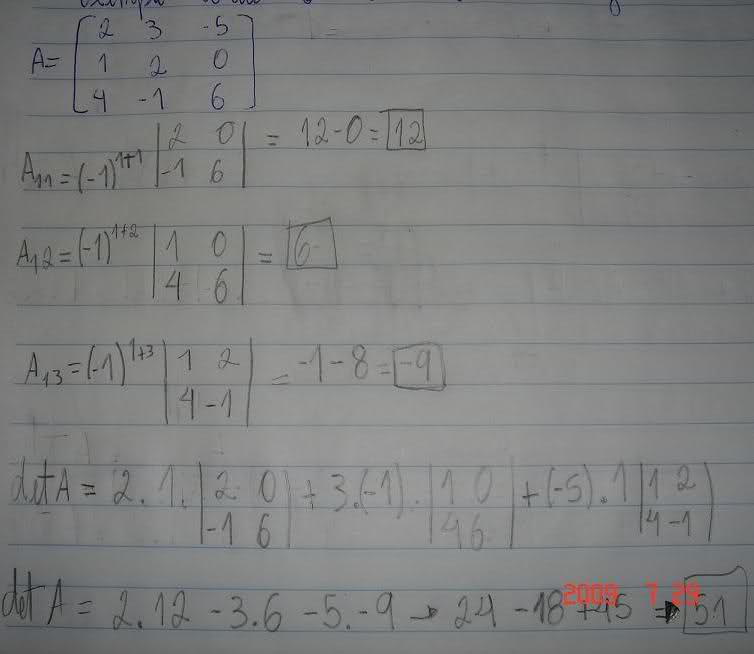 A= [ 2 3 -5
1 2 0
4 -1 6 ]
A11=(-1)^1+1 | 2 0
-1 6 | = 12-0= 12
A12=(-1)^1+2 | 1 0
4 6 | = 6
A13=(-1)^1+3 | 1 2
4 -1 | = -1-8= -9
det A = 2.1. | 2 0
-1 6 | + 3.(-1). | 1 0
4 6 | +(-5).1 | 1 2
4 -1 |
det A = 2.12 -3.6 -5.-9 → 24 -18 +45 → 51
2009 7 29